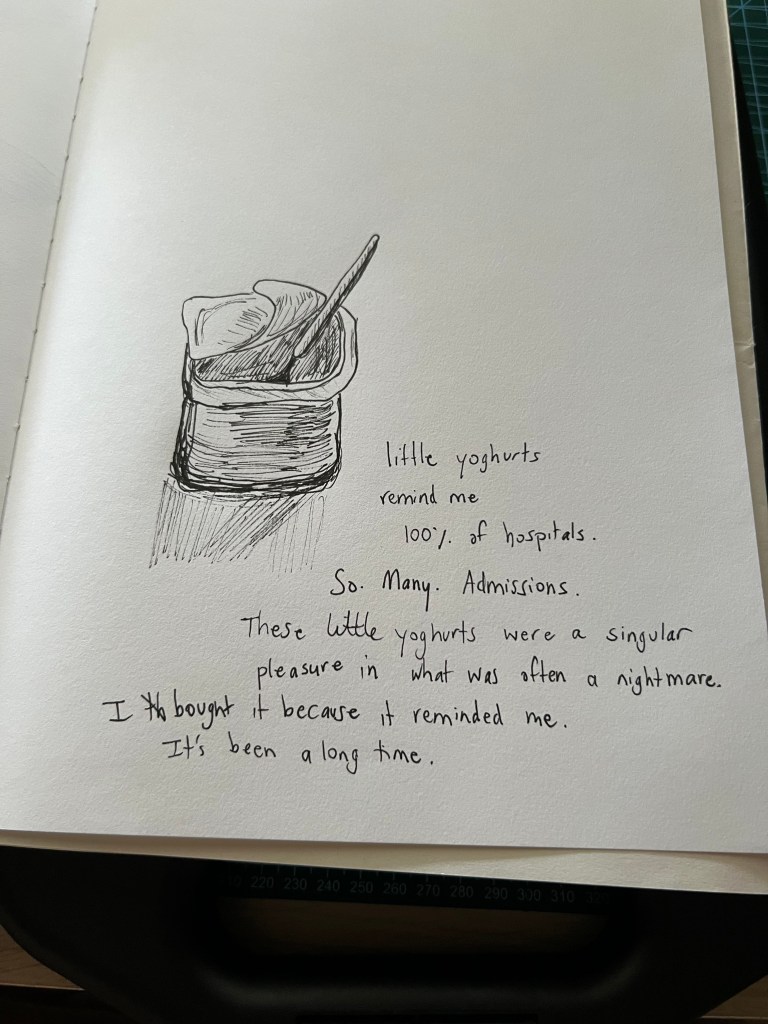 little yoghurts
remind me
100% of hospitals.
So. Many. Admissions.
These little yoghurts were a singular
pleasure in what was often a nightmare.
I bought it because it reminded me.
It's been a long time.
220 230 240 250 260 270 280 290 300 310